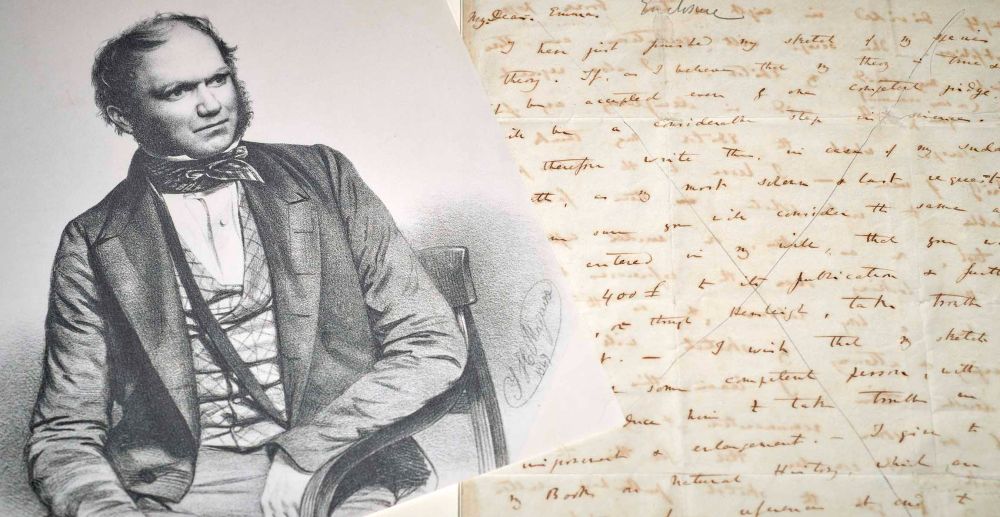 My Dear. Emma. Enclosure
I have just finished my sketch of my species
theory. If, as I believe that my theory is true &
be accepted even by one competent judge,
be a considerable step in science.
therefore write this, in case of my sudden
as my most solemn & last request
sure you will consider the same as
entered in my will, that you will
400£ to its publication & further
or through Hensleigh, take trouble
— I wish that my sketch
some competent person, with
him to take trouble in
improvement & enlargement. — I give to
my Books on Natural History, which are
references at end to
T H Maguire
1849